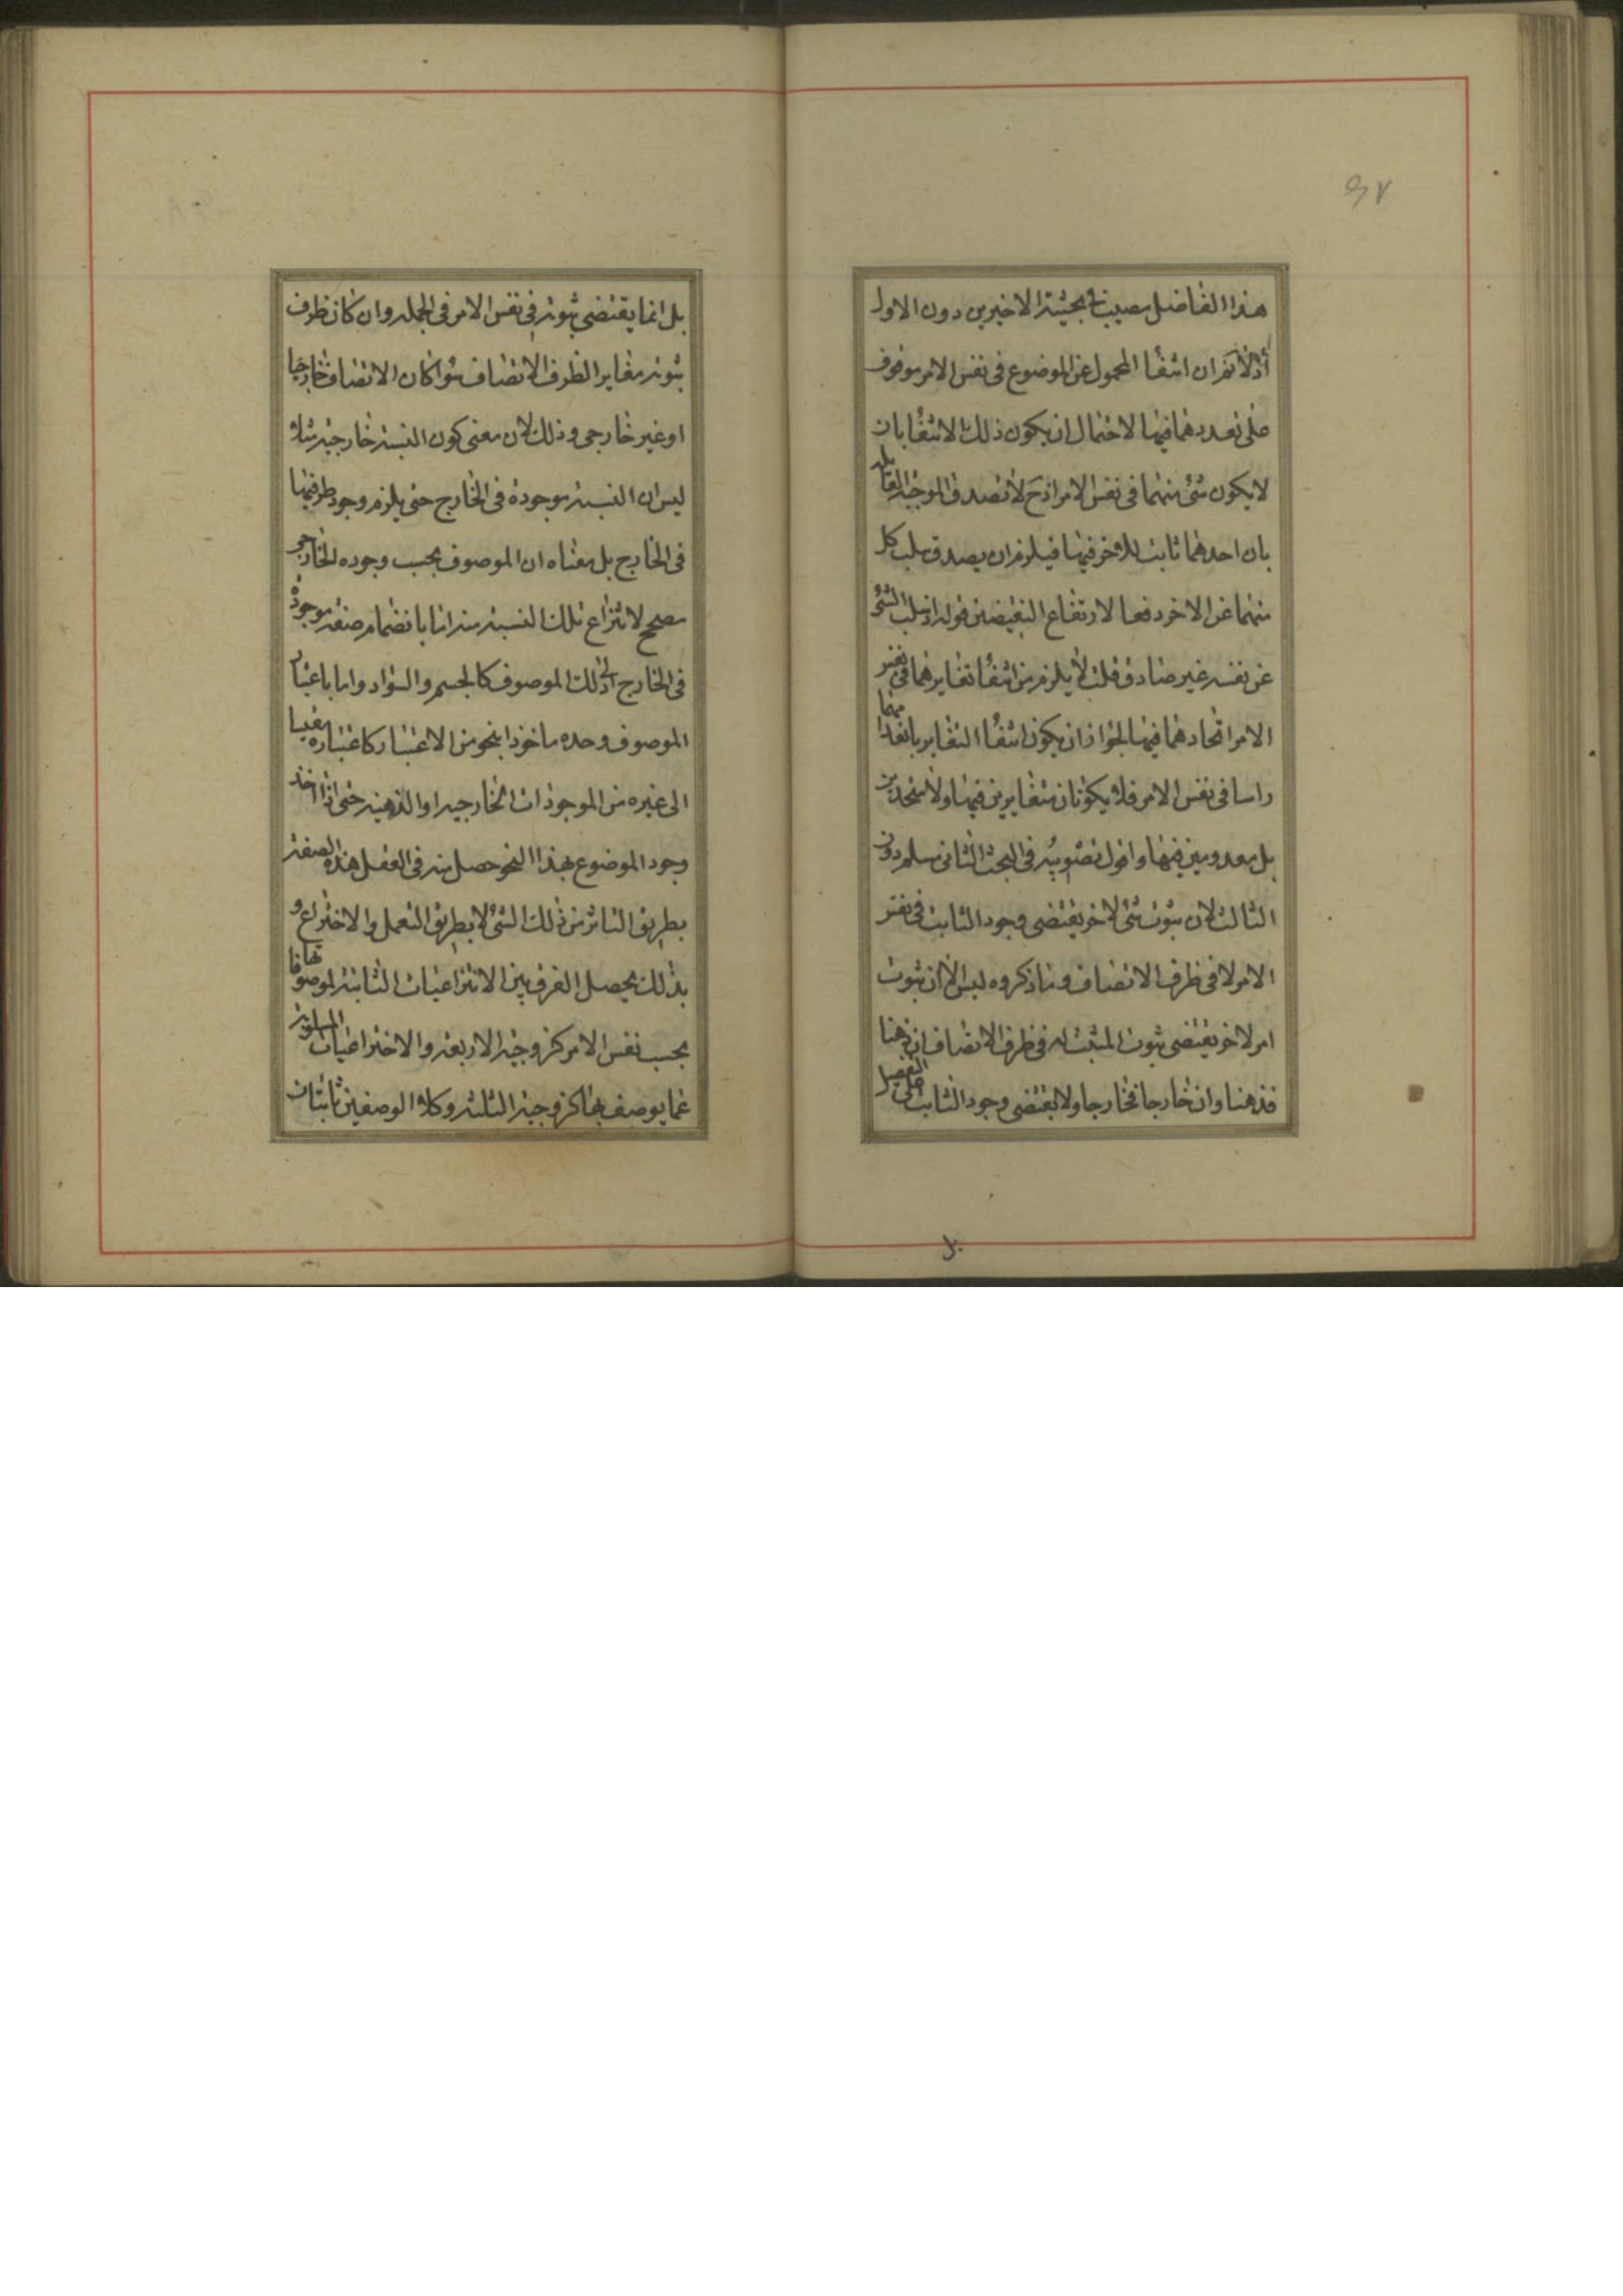 ٩٧
هذا الفاضل مصيب في بحثيته الاخيرين دون الاول
اذ لا نم ان انتفاء المحمول عن الموضوع في نفس الامر موقوف
على تعددهما فيها لاحتمال ان يكون ذلك الانتفا بان
لا يكون شئ منهما في نفس الامر اذ ح لا تصدق الموجبة القايلة
بان احدهما ثابت للاخر فيها فيلزم ان يصدق سلب كل
منهما عن الاخر دفعا لارتفاع النقيضين قوله اذ سلب الشئ
عن نفسه غير صادق قلت لا يلزم من انتفاء تغايرهما في نفس
الامر اتحادهما فيها لجواز ان يكون انتفاء التغاير بانعدامهما
راسا في نفس الامر فلا يكونان متغايرين فيها ولا متحدين
بل معدومين فيها واقول تصويبه في البحث الثاني مسلم دون
الثالث لان ثبوت شئ لاخر يقتضي وجود الثابت في نفس
الامر لا في ظرف الاتصاف وما ذكروه ليس الا ان ثبوت
امر لاخر يقتضي ثبوت المثبت له في ظرف الاتصاف ان ذهنا
فذهنا وان خارجا فخارجا ولا يقتضي وجود الثابت على التفصيل
بل
بل انما يقتضي ثبوته في نفس الامر في الجملة وان كان ظرف
ثبوته مغايرا لظرف الاتصاف سواء كان الاتصاف خارجيا
او غير خارجي وذلك لان معنى كون النسبة خارجية مثلا
ليس ان النسبة موجودة في الخارج حتى يلزم وجود طرفيها
في الخارج بل معناه ان الموصوف بحسب وجوده الخارجي
مصحح لانتزاع تلك النسبة منه اما بانضمام صفة موجودة
في الخارج الى ذلك الموصوف كالجسم والسواد واما باعتبار
الموصوف وحده ماخوذا بنحو من الاعتبار كاعتباره مقيسا
الى غيره من الموجودات الخارجية او الذهنية حتى اذا اخذ
وجود الموضوع بهذا النحو حصل منه في العقل هذه الصفة
بطريق التاثر من ذلك الشئ لا بطريق التعمل والاختراع و
بذلك يحصل الفرق بين الانتزاعيات الثابتة لموصوفاتها
بحسب نفس الامر كزوجية الاربعة والاختراعيات المسلوبة
عما يوصف بها كزوجية الثلثة وكلا الوصفين ثابتان